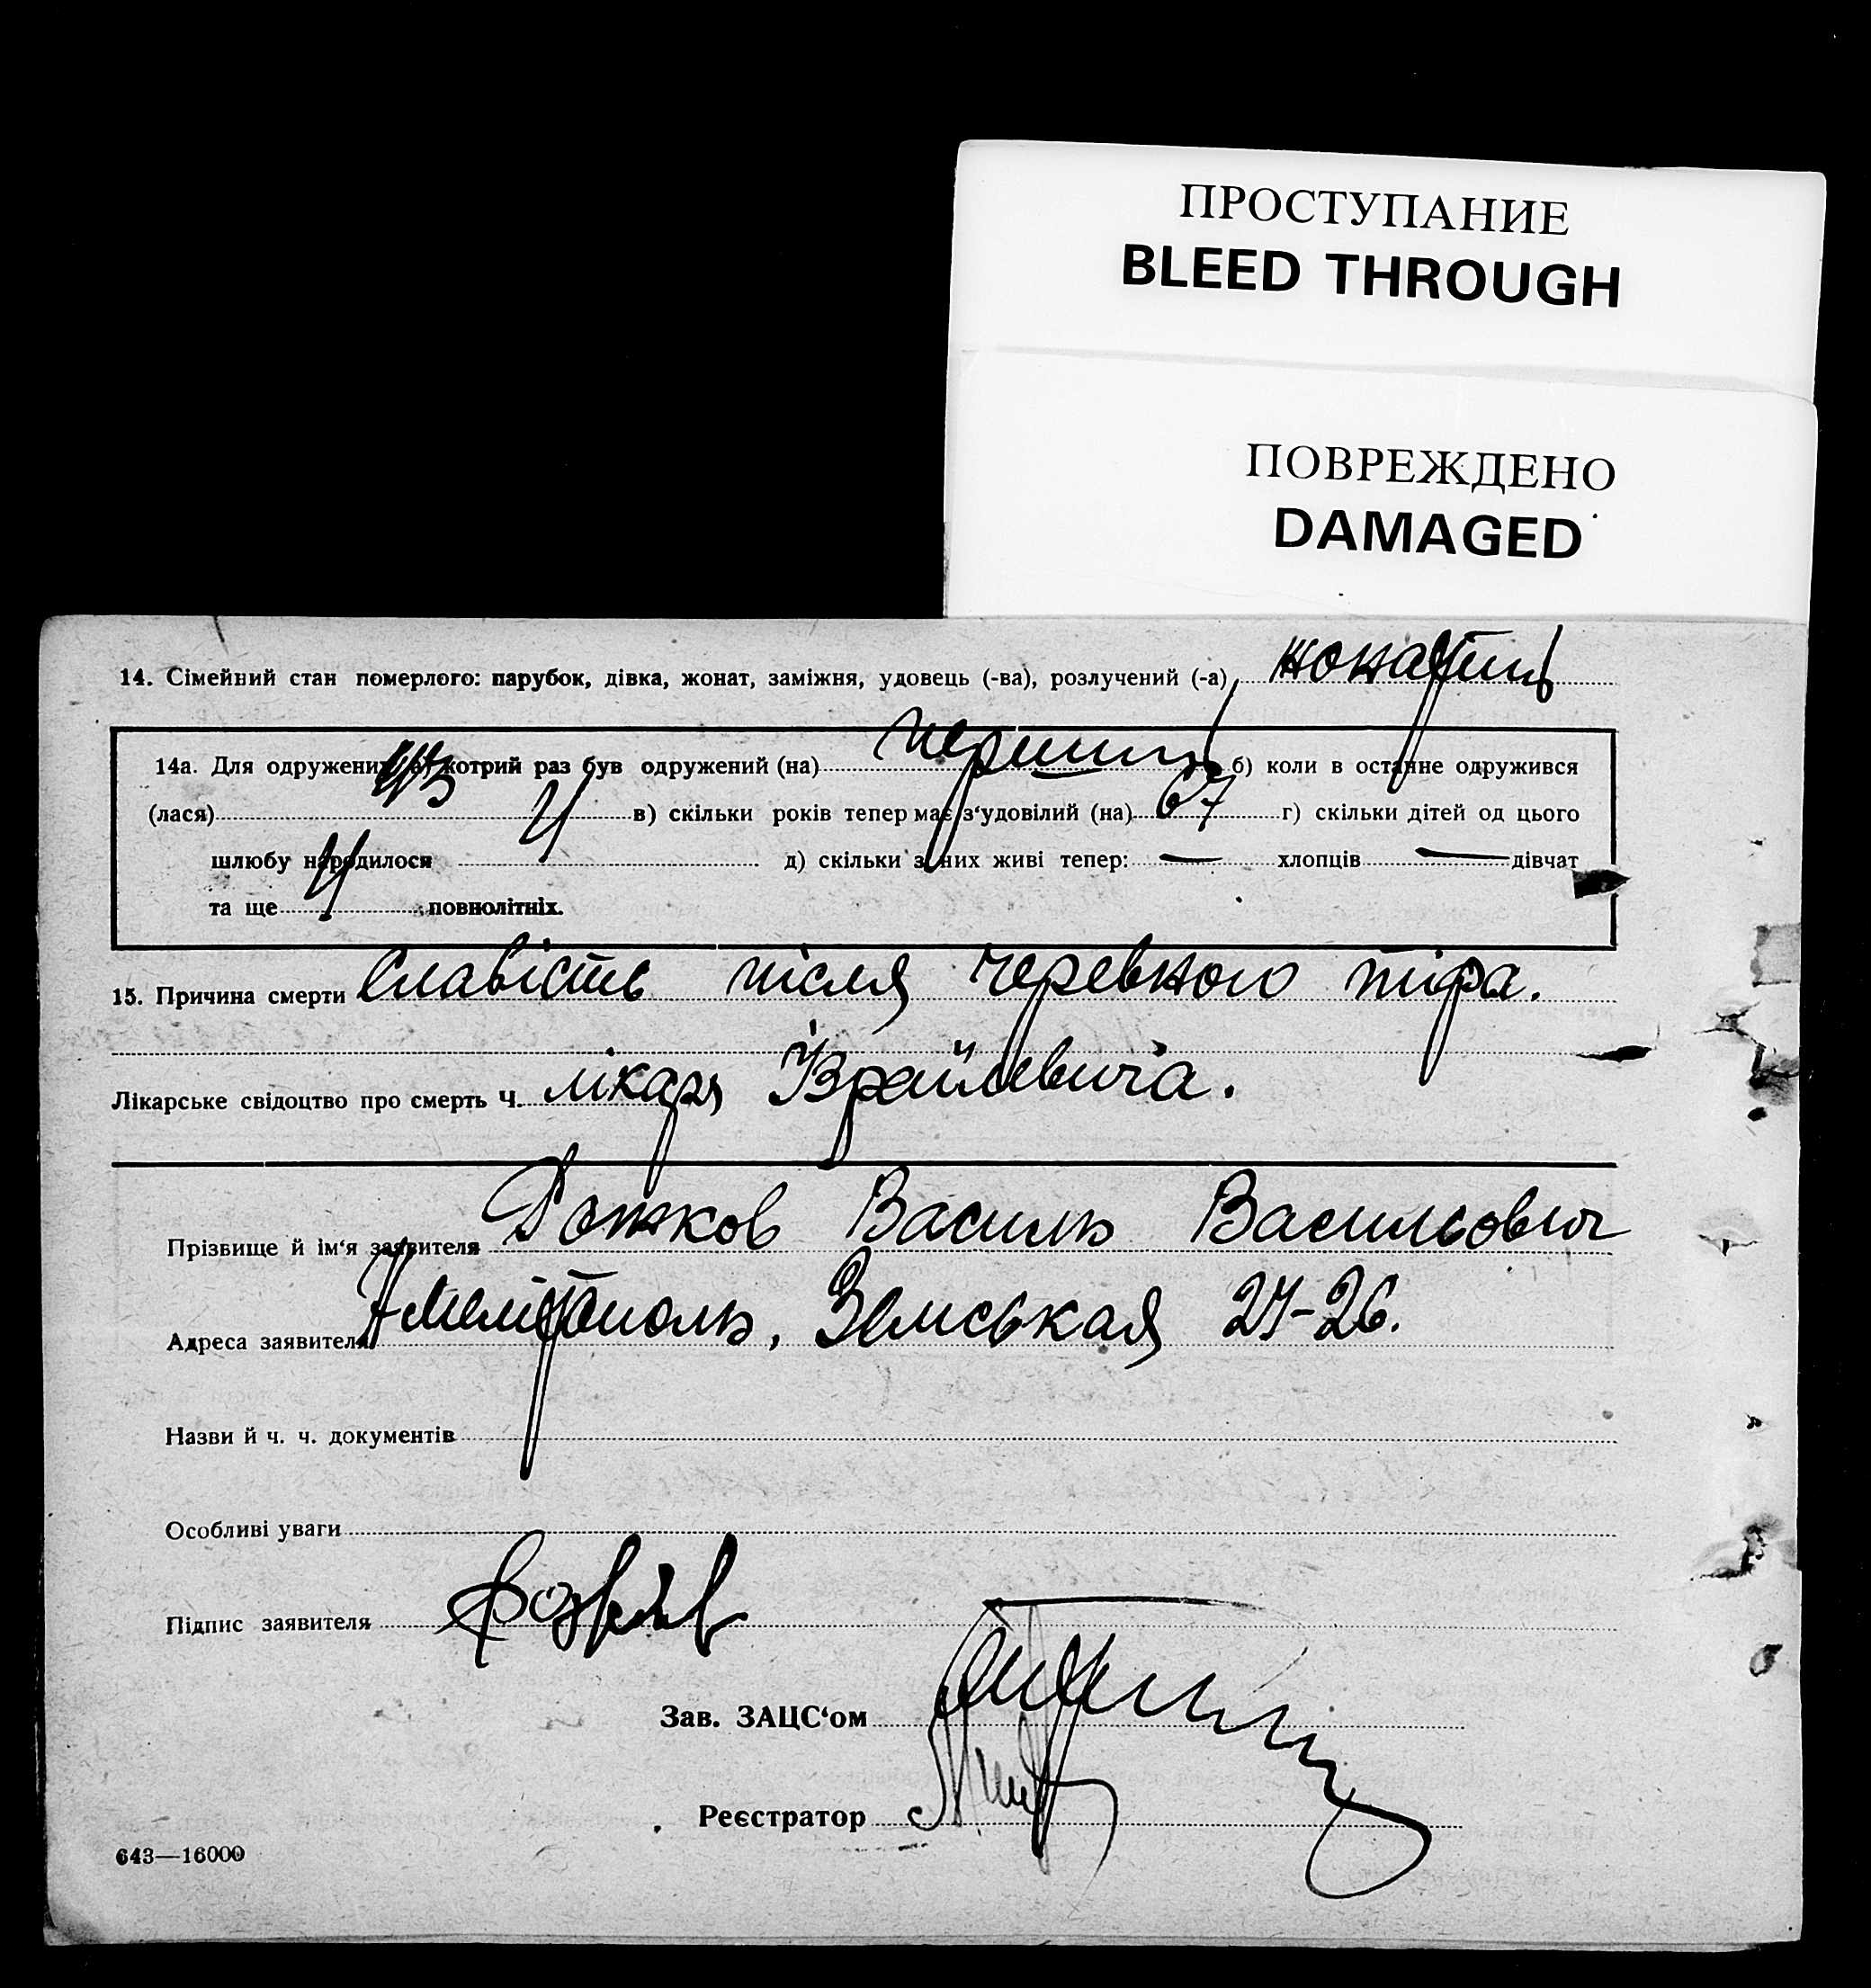 ПРОСТУПАНИЕ
BLEED THROUGH
ПОВРЕЖДЕНО
DAMAGED
14. Сімейний стан померлого: парубок, дівка, жонат, заміжня, удовець (-ва), розлучений (-а) жонатий
14а. Для одружених: а) котрий раз був одружений (на) перший б) коли в останне одружився
(лася) в) скільки років тепер має з‘удовілий (на) 67 г) скільки дітей од цього
шлюбу народилося 4 д) скільки з них живі тепер: — хлопців — дівчат
та ще 4 повнолітніх.
15. Причина смерти Славість після черевного тіфа.
Лікарське свідоцтво про смерть Ч. лікаря Ізраїлевича.
Прізвище й ім‘я заявителя Рожков Василь Васильович
Адреса заявителя Мелітополь, Земськая 27-26.
Назви й ч. ч. документів
Особливі уваги
Підпис заявителя
Зав. ЗАЦС‘ом
Реєстратор
643—16000